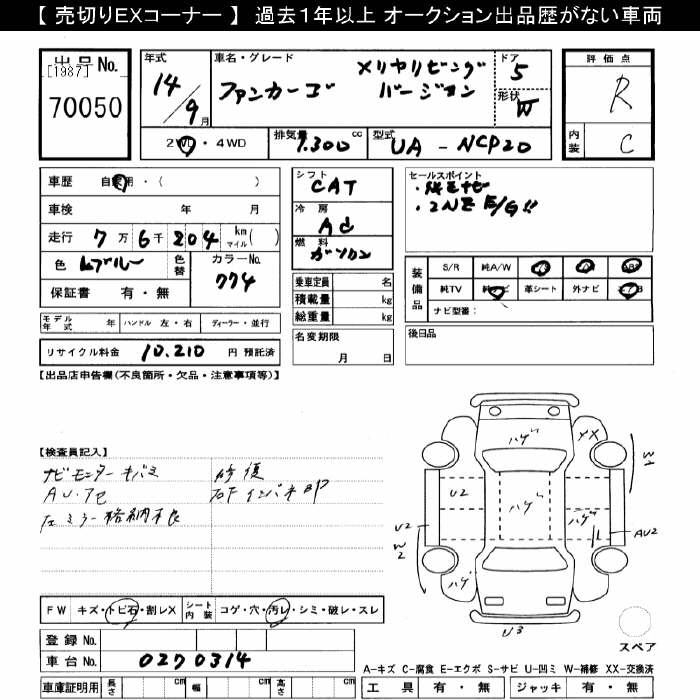 【 売切りEXコーナー 】 過去1年以上 オークション出品歴がない車両
出品 No.
[1987]
70050
年式
14/9月
車名・グレード
ファンカーゴ
メリヤリビング
バージョン
ドア
5
形状
W
評価点
R
内装
C
2WD・4WD
排気量
1.300 cc
型式
UA - NCP20
車歴 自家用・( )
車検 年 月
走行 7万6千204 km マイル ( )
色 Lブルー 色替 カラーNo. 774
保証書 有・無
モデル年式 年 ハンドル 左・右 ディーラー・並行
リサイクル料金 10.210 円 預託済
シフト
CAT
冷房
AC
燃料
ガソリン
乗車定員 名
積載量 kg
総重量 kg
名変期限
月 日
セールスポイント
・純正ナビ
・2NZ E/G!!
装備品
S/R 純A/W
純TV 純ナビ 革シート 外ナビ エアB
ナビ型番:
後日品
【出品店申告欄(不良箇所・欠品・注意事項等)】
【検査員記入】
ナビモニターキバミ
左ミラー格納不良
修復
ハゲ
XX
W1
U2
ハゲ
ハゲ
AU2
U2
W2
ハゲ
U3
スペア
FW キズ・トビ石・割レX シート内装 コゲ・穴・汚レ・シミ・破レ・スレ
登録 No.
車台 No. 0270314
車庫証明用 長さ cm 幅 cm 高さ cm
A-キズ C-腐食 E-エクボ S-サビ U-凹ミ W-補修 XX-交換済
工具 有・無 ジャッキ 有・無